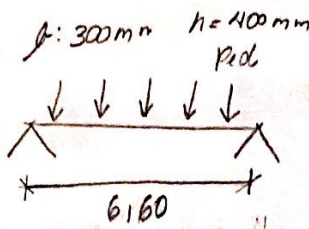 b: 300mm h= 400mm
Ped
6,60